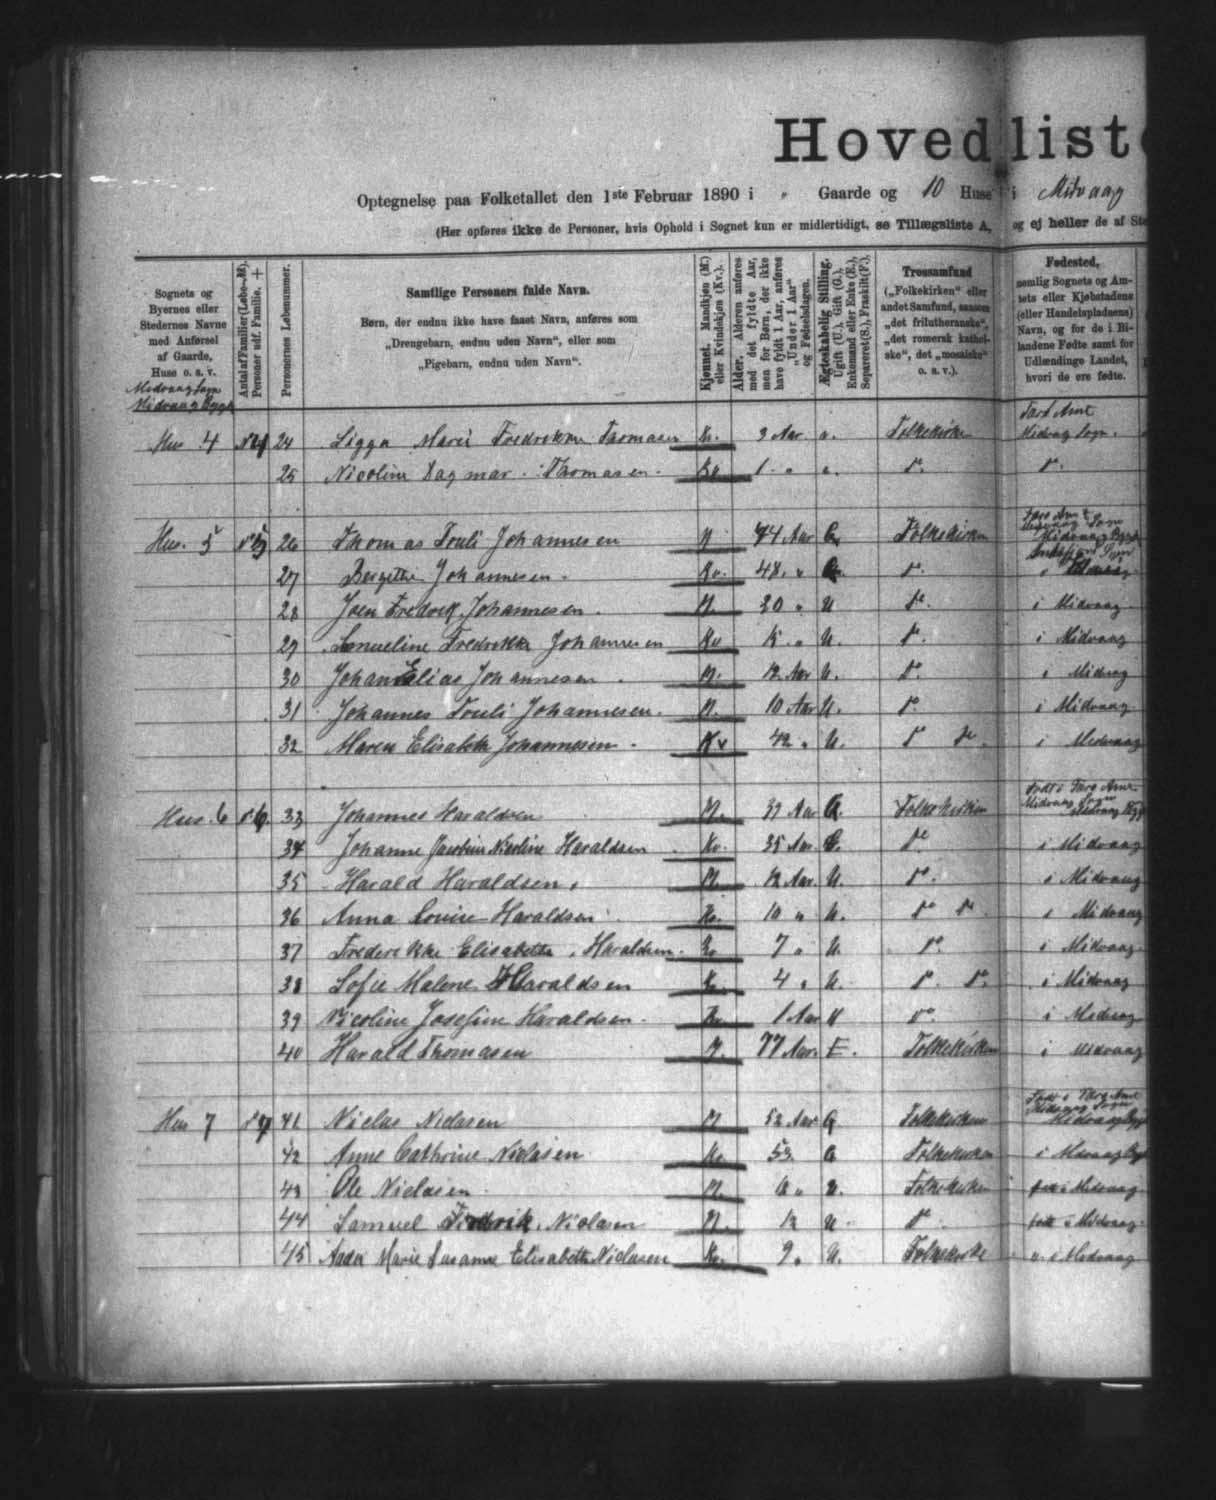 Hovedliste
Optegnelse paa Folketallet den 1ste Februar 1890 i " Gaarde og 10 Huse i Midvaag
(Her opføres ikke de Personer, hvis Ophold i Sognet kun er midlertidigt, se Tillægsliste A, og ej heller de af Ste
Sognets og Byernes eller Stedernes Navne med Anførsel af Gaarde, Huse o. s. v.
Antal af Familier (Løbe-№). Personer udf. Familie. +
Personernes Løbenummer.
Samtlige Personers fulde Navn.
Børn, der endnu ikke have faaet Navn, anføres som
„Drengebarn, endnu uden Navn“, eller som
„Pigebarn, endnu uden Navn“.
Kjønnet. Mandkjøn (M.) eller Kvindekjøn (Kv.).
Alder. Alderen anføres med det fyldte Aar, men for Børn, der ikke have fyldt 1 Aar, anføres „Under 1 Aar“ og Fødselsdagen.
Ægteskabelig Stilling. Ugift (U.), Gift (G.), Enkemand eller Enke (E.), Separeret (S.), Fraskilt (F.).
Trossamfund („Folkekirken“ eller andet Samfund, saasom „det frilutheranske“, „det romersk katholske“, det „mosaiske“ o. s. v.).
Fødested, nemlig Sognets og Amtets eller Kjøbstadens (eller Handelspladsens) Navn, og for de i Bilandene Fødte samt for Udlændinge Landet, hvori de ere fødte.
Midvaag Sogn
Midvaag Bygd
Hus 4 24 Ligga Marie Fredrikke Thomasen Kv. 3 Aar u. Folkekirke Midvag Sogn.
25 Nicoline Dagmar Thomasen Kv 1 "
Hus. 5 26 Thomas Pouli Johannesen M 74 Aar G. Folkekirken
27 Bergethe Johannesen Kv. 48 " i Midvaag
28 Joen Fredrik Johannesen M. 20 " U i Midvaag
29 Fredrikke Johannesen Kv " U. i Midvaag
30 Johan Elias Johannesen M. 12 Aar U. i Midvag
31 Johannes Pouli Johannesen M. 10 Aar U. i Midvaag
32 Maren Elisabeth Johannesen Kv 42 " U. i Midvaag
Hus. 6 33 Johannes Haraldsen M. Aar G. Folkekirken
34 Johanne Jacobine Nicoline Haraldsen Kv. 35 Aar G. i Midvaag
35 Harald Haraldsen M 12 Aar U. i Midvaag
36 Anna Louise Haraldsen Kv. 10 " U. i Midvaag
37 Frederikke Elisabeth Haraldsen Kv 7 " U. i Midvaag
38 Sofie Malene Haraldsen Kv. 4 " U. i Midvaag
39 Nicoline Josefine Haraldsen Kv. 1 Aar U i Midvaag
40 Harald Thomasen M. 77 Aar. E. Folkekirken i Midvaag
Hus 7 41 Niclas Niclasen M 52 Aar G Folkekirken
42 Anne Cathrine Niclasen Kv. 53 G Folkekirken i Midvaag
43 Ole Niclasen M. " U. Folkekirken i Midvaag
44 Samuel Fredrik Niclasen M. 12 U i Midvaag
45 Marie Susanne Elisabeth Niclasen Kv. 9 " U. Folkekirke i Midvaag